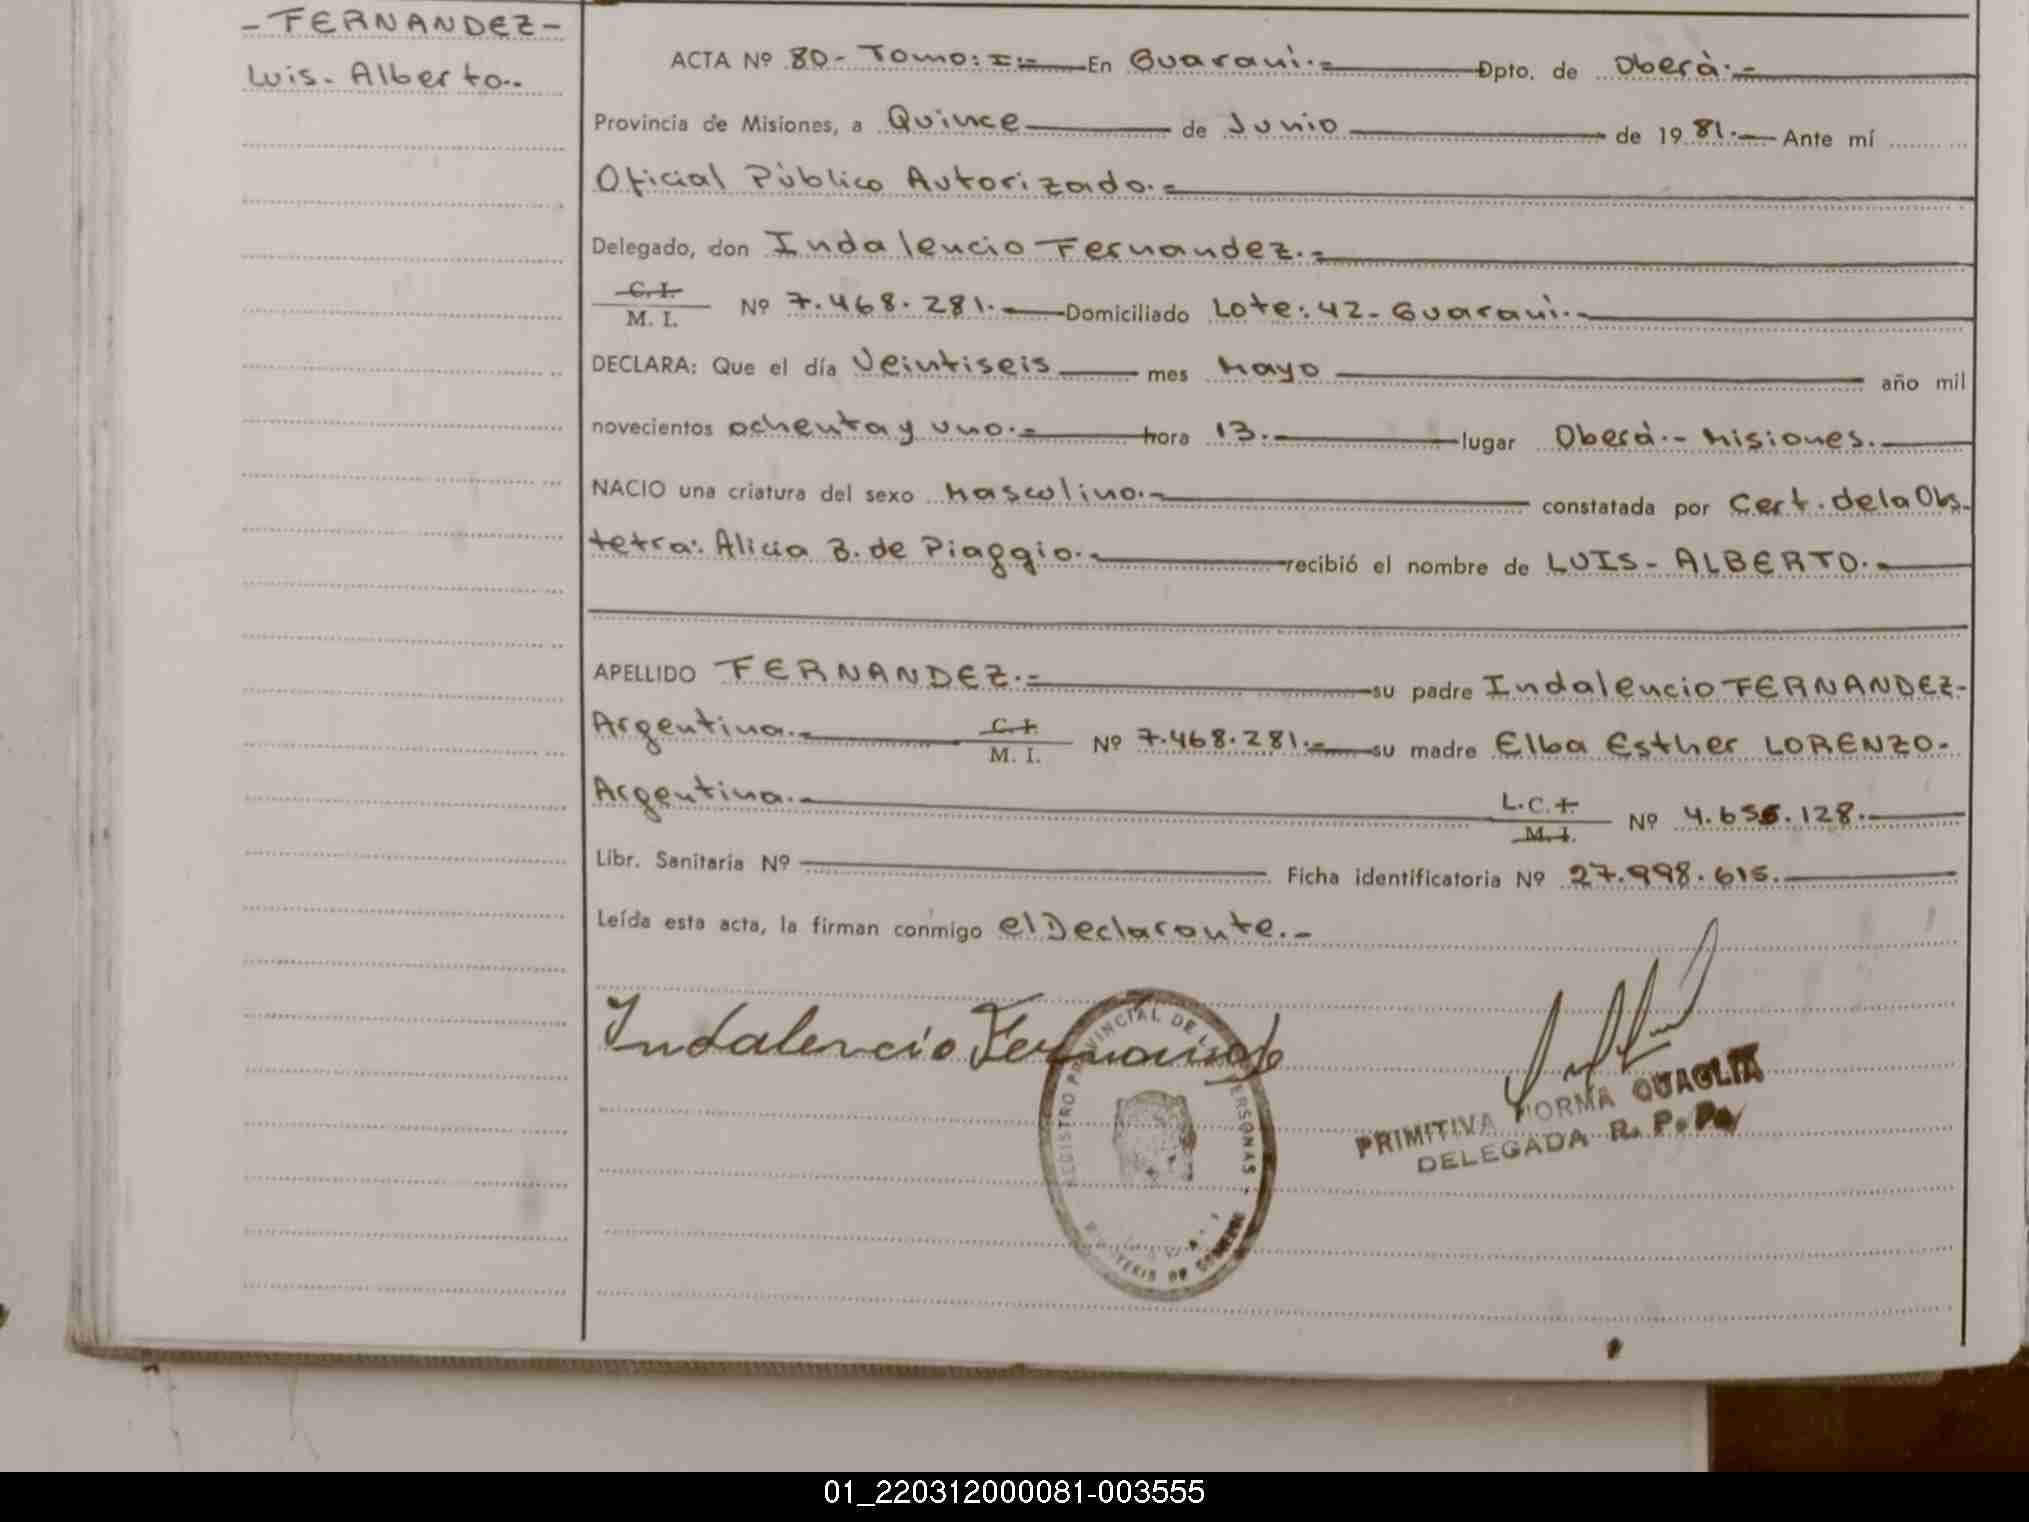 -FERNANDEZ-
Luis-Alberto..
ACTA Nº 80- Tomo: I:- En Guaraní.- Dpto. de Oberà.-
Provincia de Misiones, a Quince de Junio de 1981.- Ante mí
Oficial Público Autorizado.-
Delegado, don Indalencio Fernandez.-
C. I.
M. I. Nº 7.468.281.- Domiciliado Lote: 42- Guaraní.-
DECLARA: Que el día Veintiseis mes Mayo año mil
novecientos ochenta y uno.- hora 13.- lugar Oberà.- Misiones.-
NACIO una criatura del sexo Masculino.- constatada por Cert. de la Obs-
tetra: Alicia B. de Piaggio.- recibió el nombre de LUIS-ALBERTO.-
APELLIDO FERNANDEZ.- su padre Indalencio FERNANDEZ-
Argentina.- C. I. M. I. Nº 7.468.281.- su madre Elba Esther LORENZO-
Argentina.- L.C. I. M. I. Nº 4.656.128.-
Libr. Sanitaria Nº Ficha identificatoria Nº 27.998.615.-
Leída esta acta, la firman conmigo el Declarante.-
Indalencio Fernandez
REGISTRO PROVINCIAL DE LAS PERSONAS
MINISTERIO DE GOBIERNO
PRIMITIVA NORMA QUAGLIA
DELEGADA R. P. P.
01_220312000081-003555